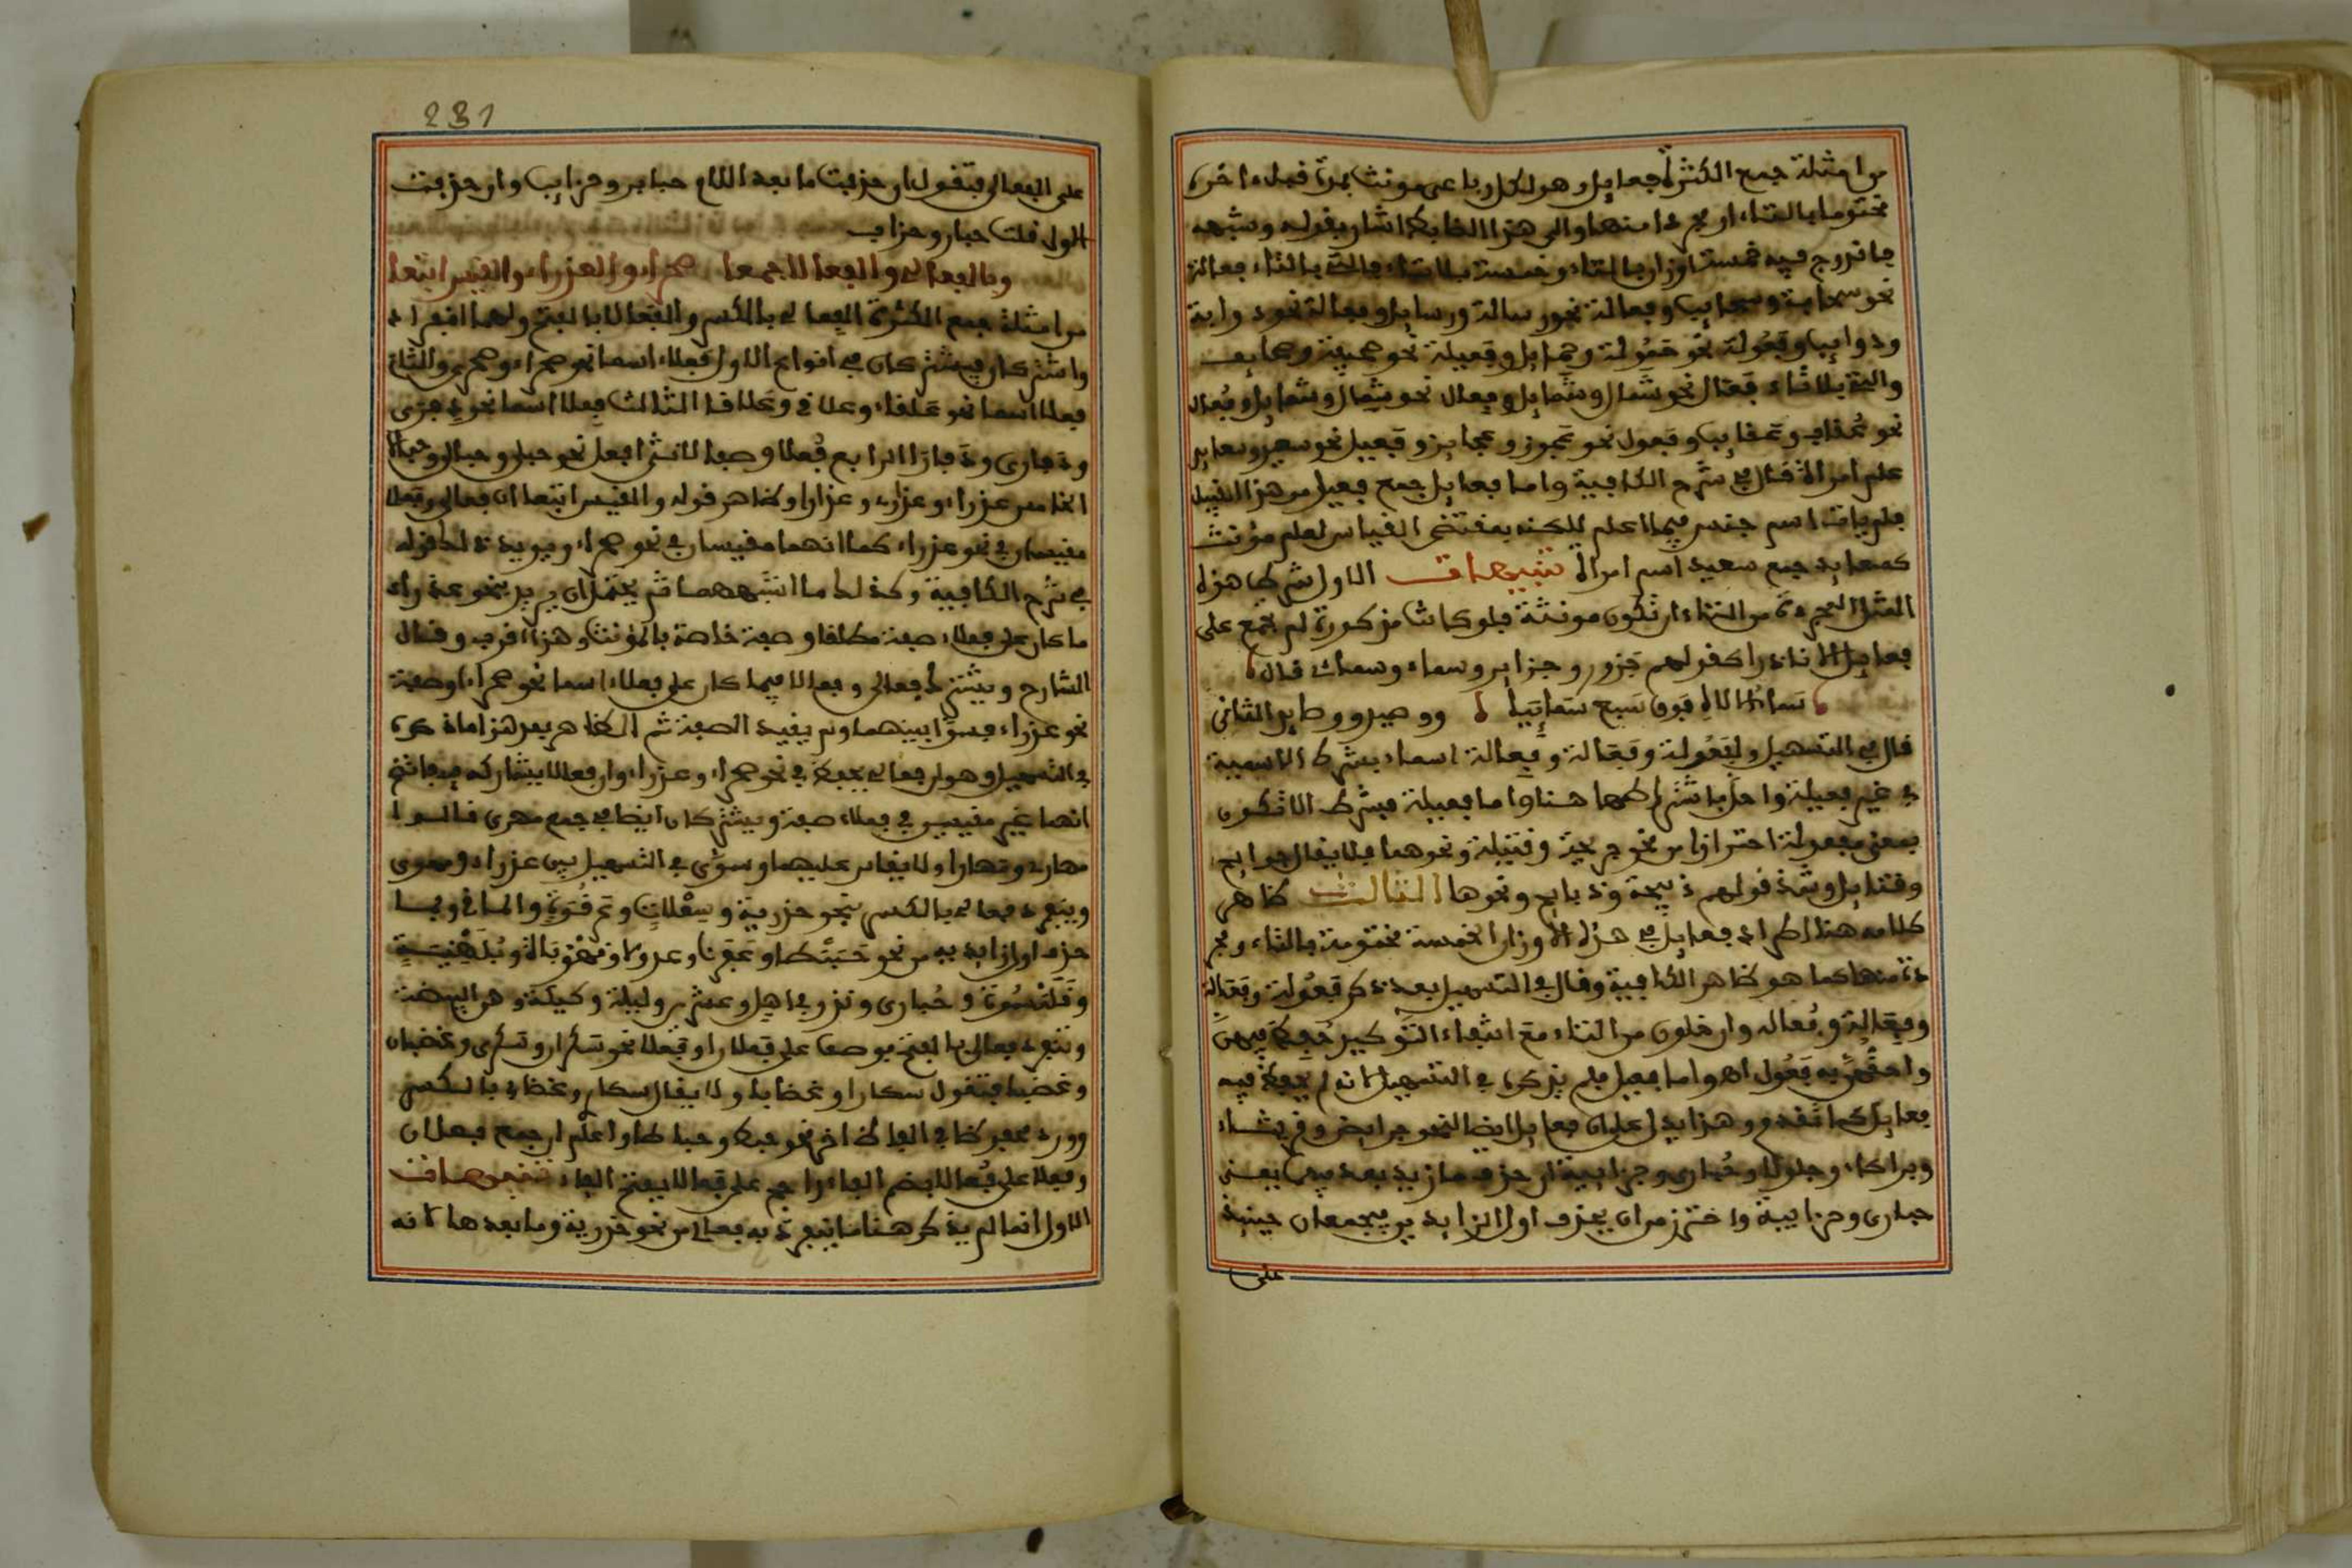 من امثلة جمع الكثرة فعايل وهو لكل رباعى مونث بمدة قبل ءاخره
مختوما بالتاء او مجردا منها والى هذا الضابط اشار بقوله وشبهه
فاندرج فيه خمسة اوزان بالتاء وخمسة بلا تاء فالتى بالتاء فعالة
نحو سحابة وسحايب وفعالة نحو رسالة ورسايل وفعالة نحو ذوابة
وذوايب وفعولة نحو حمولة وحمايل وفعيلة نحو صحيفة وصحايف
والتى بلا تاء فعال نحو شمال وشمايل وفعال نحو شمال وشمايل وفعال
نحو عقاب وعقايب وفعول نحو عجوز وعجايز وفعيل نحو سعيد وسعايد
علم امراة قال فى شرح الكافية واما فعايل جمع فعيل من هذا القبيل
فلم يات اسم جنس فيما اعلم للكنه بمقتضى القياس لعلم مؤنث
كسعايد جمع سعيد اسم امراة تنبيهات الاول شرط هذه
المثل المجردة من التاء ان تكون مونثة فلو كانت مذكورة لم تجمع على
فعايل الا نادرا كقولهم جزور وجزاير وسماء وسماى قال
سماء الالاه فوق سبع سمايا ووصيد ووصايد الثانى
قال فى التسهيل ولفعولة وفعالة وفعالة اسما يشرط الاسمية
فى غير فعيلة واخل باشتراطها هنا واما فعيلة فبشرط الا تكون
بمعنى مفعولة احترازا من نحو جريحة وقتيلة ونحوهما فلا يقال جرايح
وقتايل وشذ قولهم ذبيحة وذبايح ونحوها الثالث ظاهر
كلامه هنا اطراد فعايل فى هذه الاوزان الخمسة مختومة بالتاء ومجر
دة منها كما هو ظاهر الكافية وقال فى التسهيل بعد ذكر فعولة وفعالة
وفعالة وفعاله وان خلون من التاء مع انتفاء التذكير حفظ فيهن
واحقهن به فعول اه واما فعيل فلم يذكره فى التسهيل لانه لم يحفظ فيه
فعايل كما تقدم وهذا يدل على ان فعايل ايضا لنحو جرايض وقريثاء
وبراكاء وجلولا وحبارى وحزابية ان حذف ما زيد بعد فيهما يعنى
حبارى وحزابية واحترز من ان يحذف اول الزايدين فيجمعان حينيذ
على
231
على الفعالى فتقول ان حذفت ما بعد اللام حباير وحزايب وان حذفت
الاول قلت حبار وحزاب
وبالفعالى والفعالا جمعا صحراء والعذراء والقيس اتبعا
من امثلة جمع الكثرة الفعالى بالكسر والفعالا بالفتح ولهما انفراد
واشتراك فيشتركان فى انواع الاول فعلاء اسما نحو صحراء وصحر والثانى
فعلا اسما نحو علقا وعلاق وعلاقا الثالث فعلا اسما نحو ذفرى
وذفارى وذفارا الرابع فعلا وصفا لا انثى افعل نحو حبلى وحبال وحبالا
الخامس عذراء وعذار وعذارا وظاهر قوله والقيس اتبعا ان فعالى وفعالا
مقيسان فى نحو عذراء كما انهما مقيسان فى نحو صحراء ويويد ذلك قوله
فى شرح الكافية وكذلك ما اشبههما ثم يحتمل ان يريد بنحو عذراء
ما كان على فعلاء صفة مطلقا وصفة خاصة بالمؤنث وهذا اقرب وقال
الشارح ويشترك فعالى وفعالا فيما كان على فعلاء اسما نحو صحراء او صفة
نحو عذراء فسوا بينهما ولم يقيد الصفة ثم الظاهر بعد هذا ما ذكره
فى التسهيل وهو ان فعالى يحفظ فى نحو صحراء وعذراء وان فعالا يشاركه فيه فاتضح
انهما غير مقيس فى فعلاء صفة ويشتركان ايضا فى جمع مهرى قالوا
مهار ومهارا ولا يقاس عليهما وسوى فى التسهيل بين عذراء ومهرى
وينفرد فعالى بالكسر نحو حذرية وسعلاة وعرقوة والماقى وبما
حذف اول زايديه من نحو حبنطا وعفرنا وعدولا وقهوباة وبلهنية
وقلنسوة وحبارى وندر فى اهل وعشرين وليلة وكيكة وهى البيضة
وينفرد فعالى بالفتح بوصف على فعلان او فعلا نحو سكران وسكرى وغضبان
وغضبا فتقول سكارا وغضابا ولا يقال سكار وغضاب بالكسر
وورد محفوظا فى الفاظ اخر نحو حبط وحباطا واعلم ان جمع فعلان
وفعلا على فعالا بضم الفاء راجح على فعالا بفتح الفاء تنبيهات
الاول انما لم يذكر هنا ما ينفرد به فعالى من نحو حذرية وما بعدها لانه